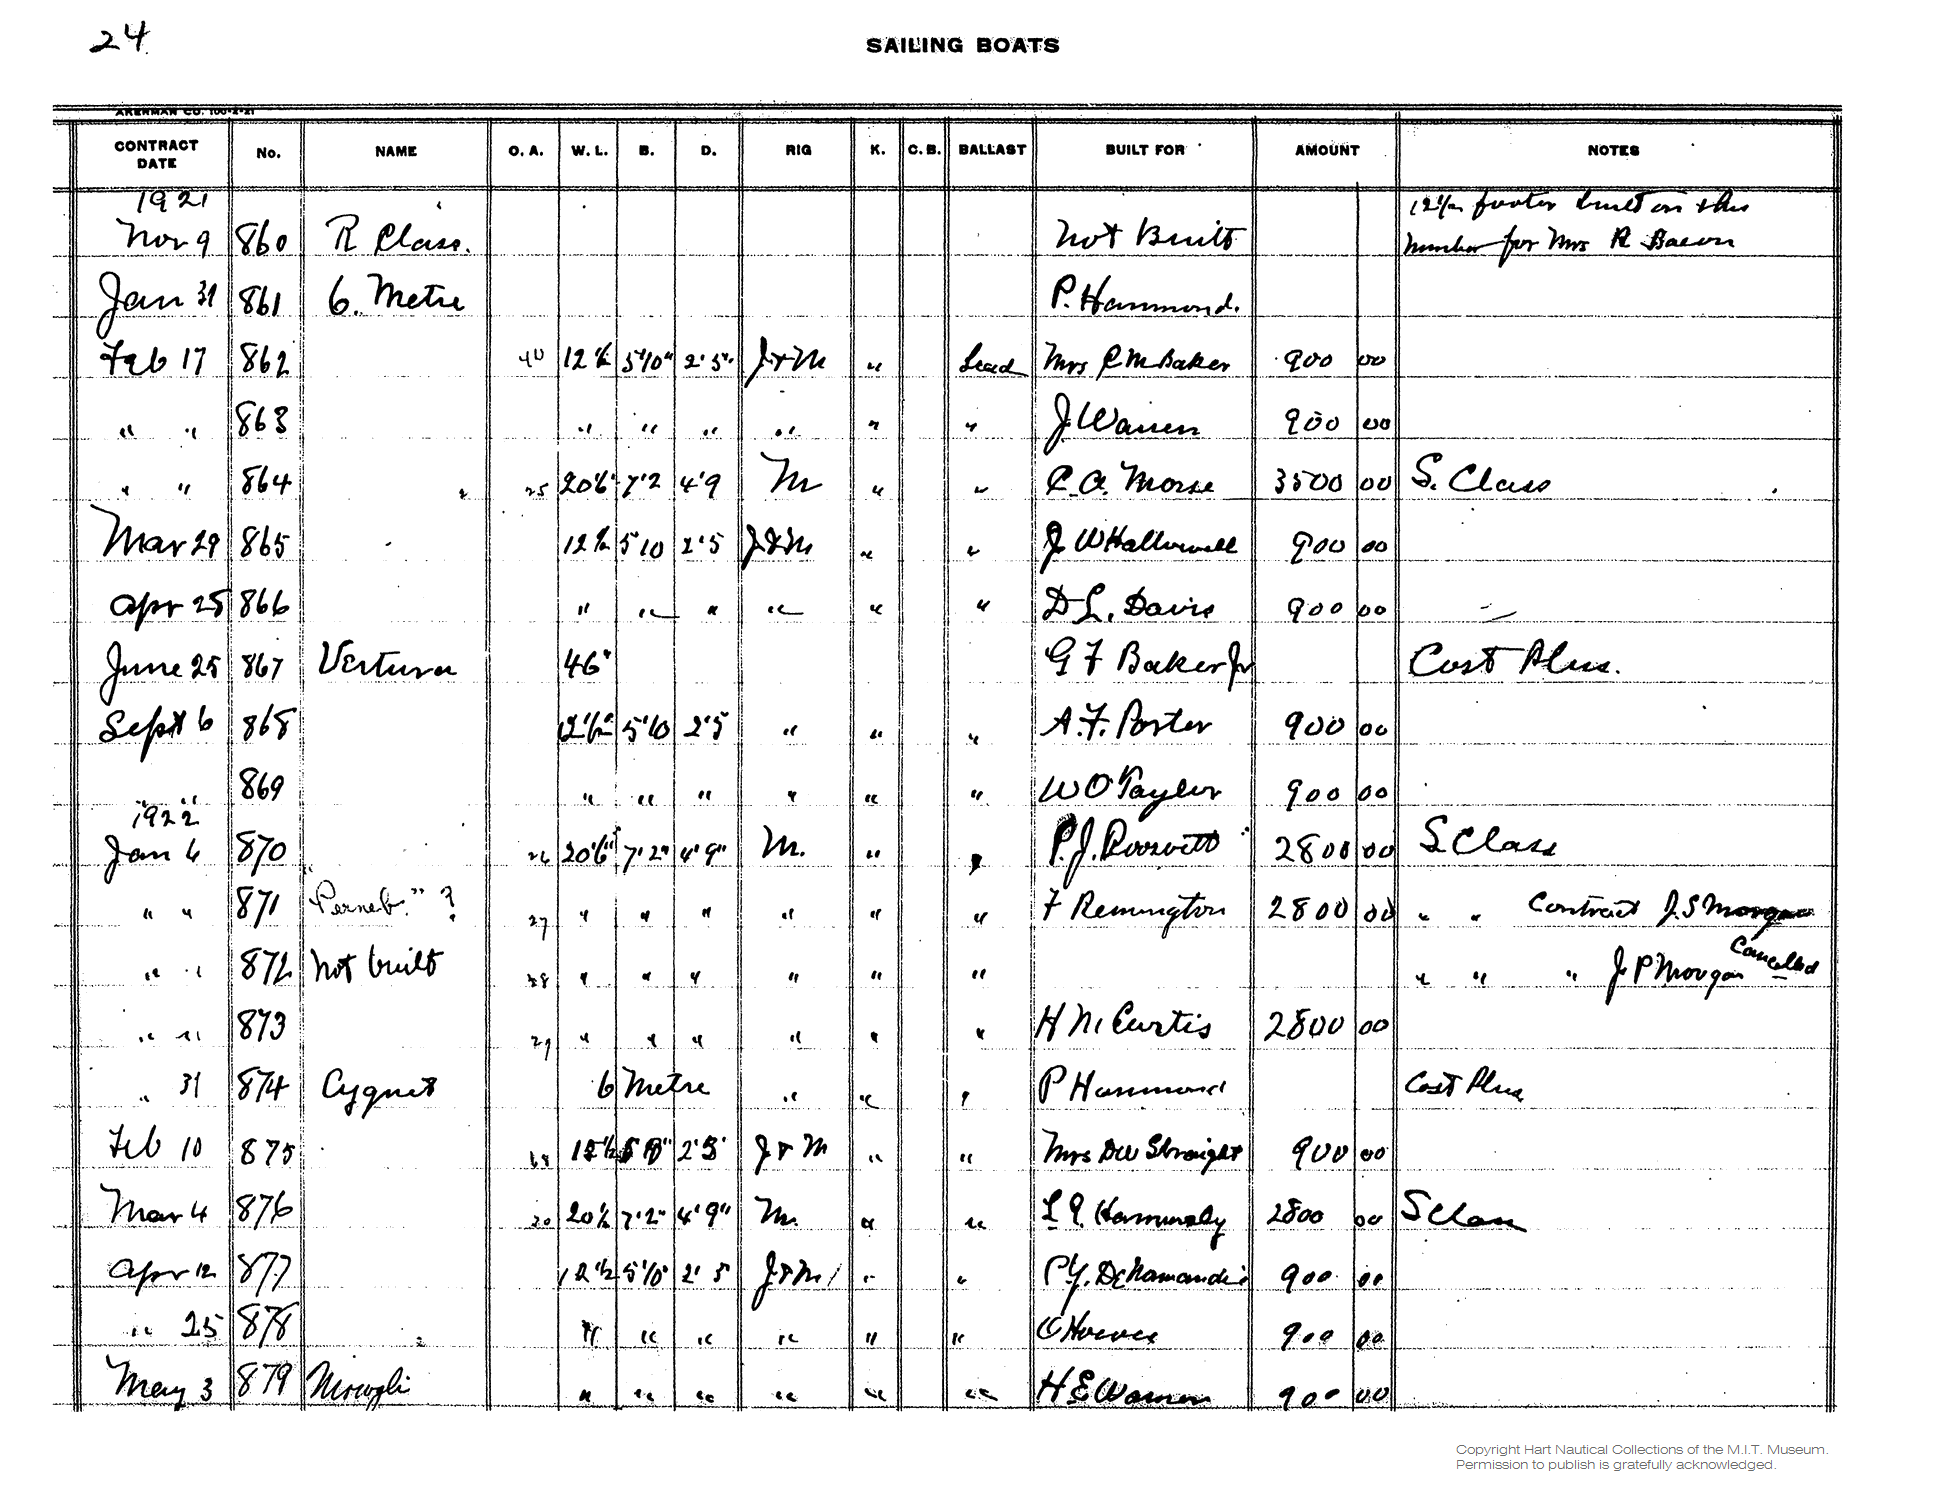 24
SAILING BOATS
AKERMAN CO. 100-2-21
CONTRACT DATE No. NAME O. A. W. L. B. D. RIG K. C. B. BALLAST BUILT FOR AMOUNT NOTES
1921 12½ footer built on this
Nov 9 860 R Class. Not Built number for Mrs R Bacon
Jan 31 861 6. Metre P. Hammond.
Feb 17 862 40 12½ 5'10" 2'5" J+M " Lead Mrs R M Baker 900 00
" " 863 " " " " " " J Warren 900 00
" " 864 25 20'6" 7'2 4'9 M " " C. A. Morse 3500 00 S. Class
Mar 29 865 12½ 5'10 2'5 J&M " " J W Hallowell 900 00
Apr 25 866 " " " " " " D L. Davis 900 00
June 25 867 Ventura 46' G F Baker Jr Cost Plus.
Sept 6 868 12½ 5'10 2'5 " " " A. F. Porter 900 00
" " 869 " " " " " " W O Taylor 900 00
1922
Jan 6 870 26 20'6" 7'2" 4'9" M. " " P. J. Roosevelt 2800 00 S Class
" " 871 "Perneb." ? 27 " " " " " " F Remington 2800 00 " " Contract J. S Morgan
" " 872 Not built 28 " " " " " " " " " J P Morgan Cancelled
" " 873 29 " " " " " " H M Curtis 2800 00
" 31 874 Cygnet 6 Metre " " " P Hammond Cost Plus
Feb 10 875 12½ 2'5' J + M " " Mrs D W Straight 900 00
Mar 4 876 20 20½ 7'2" 4'9" M. " " L G. Hamersley 2800 00 S Class
Apr 12 877 12½ 5'10" 2'5 J&M " " 900 00
" 25 878 " " " " " " 900 00
May 3 879 Mowgli " " " " " " H E Warner 900 00
Copyright Hart Nautical Collections of the M.I.T. Museum.
Permission to publish is gratefully acknowledged.